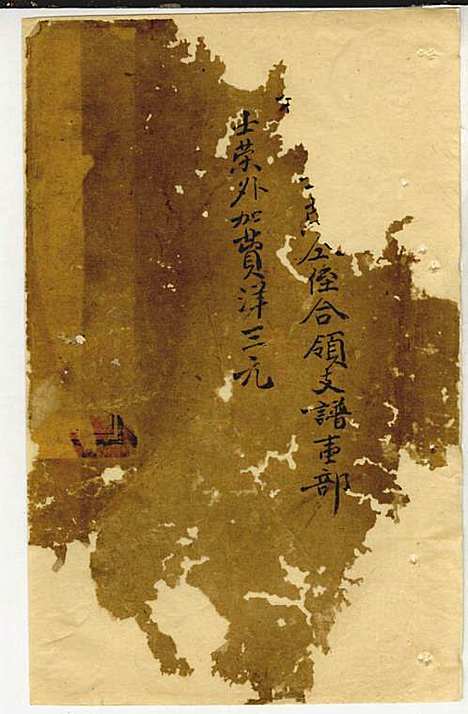 侄合領支譜壹部
士榮外加費洋三元